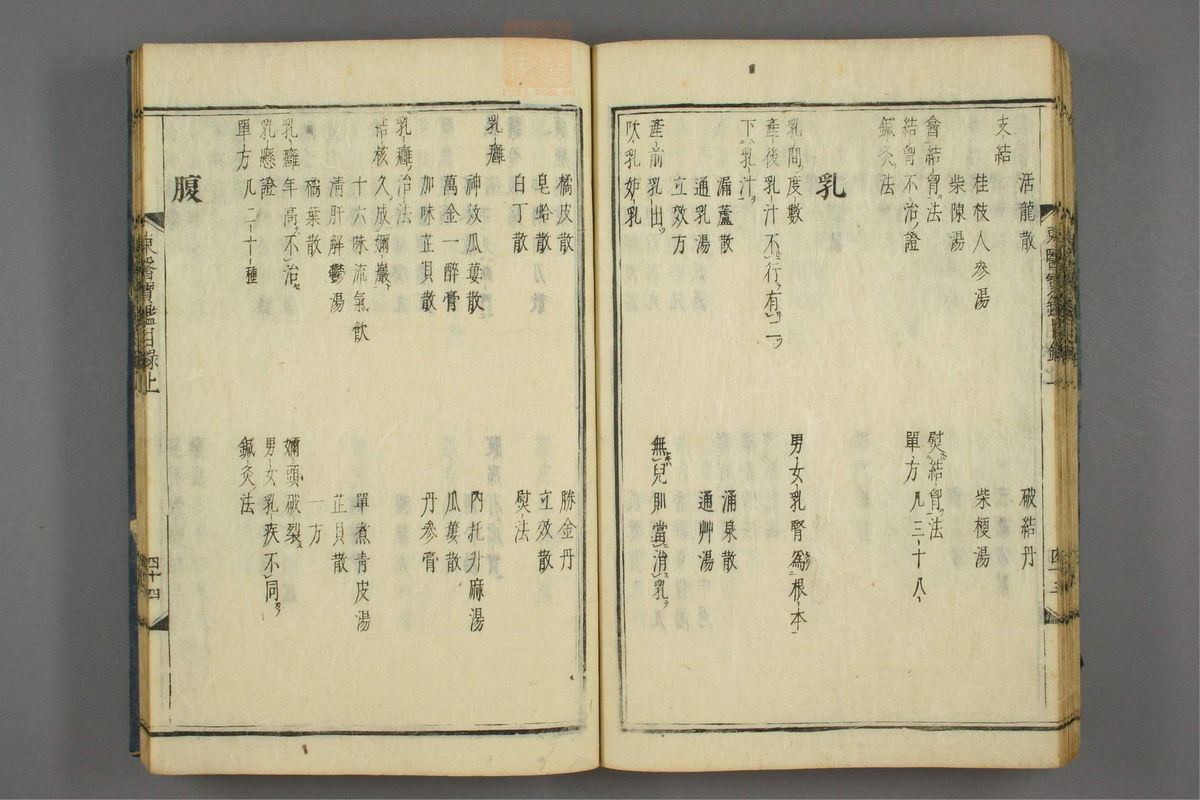 活龍散 破結丹
支結
桂枝人參湯 柴梗湯
柴陳湯
結胷法 熨結胷法
結胷不治ノ證 單方凡三十八
鍼灸法
乳
乳間ノ度數 男女乳腎爲根本
產後乳汁不行有二ツ
下乳汁
漏蘆散 涌泉散
通乳湯 通艸湯
立效方
產前乳出ツ 無兒則當消乳ヲ
吹乳妒乳
東醫寶鑑目錄上
四十三
橘皮散 勝金丹
皂蛤散 立效散
白丁散 熨法
乳癰
神效瓜蔞散 內托升麻湯
萬金一醉膏 瓜蔞散
加味芷貝散 丹參膏
乳癰ノ治法
結核久成嬭巖
十六味流氣飮 單煮青皮湯
清肝解鬱湯 芷貝散
橘葉散 一方
乳癰年高不治 嬭頭破裂
乳懸證 男女乳疾不同
單方凡二十一種 鍼灸法
腹
東醫寶鑑目錄上
四十四